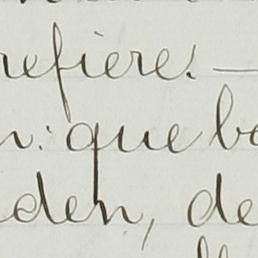 refiere. —
n: que be
den, de